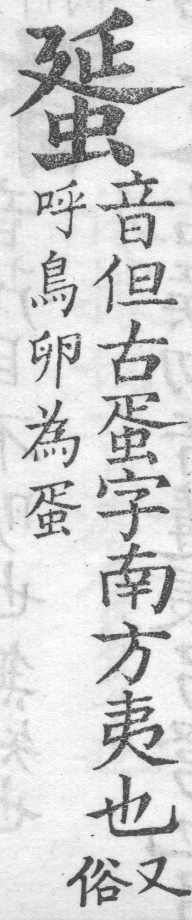 蜑
音但古蛋字南方夷也又俗
呼鳥卵為蛋